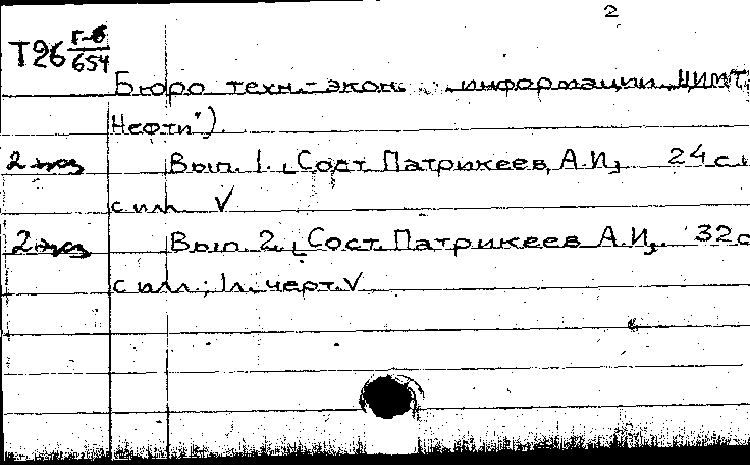 2
Т26 Г-6/654
Бюро техн.-экон. информации ЦИМТ
Нефти").
2 экз Вып. 1. [Сост. Патрикеев, А.И.] 24 с.
с илл. V
2 экз Вып. 2. [Сост. Патрикеев А.И.]. 32 с
с илл.; 1 л. черт. V